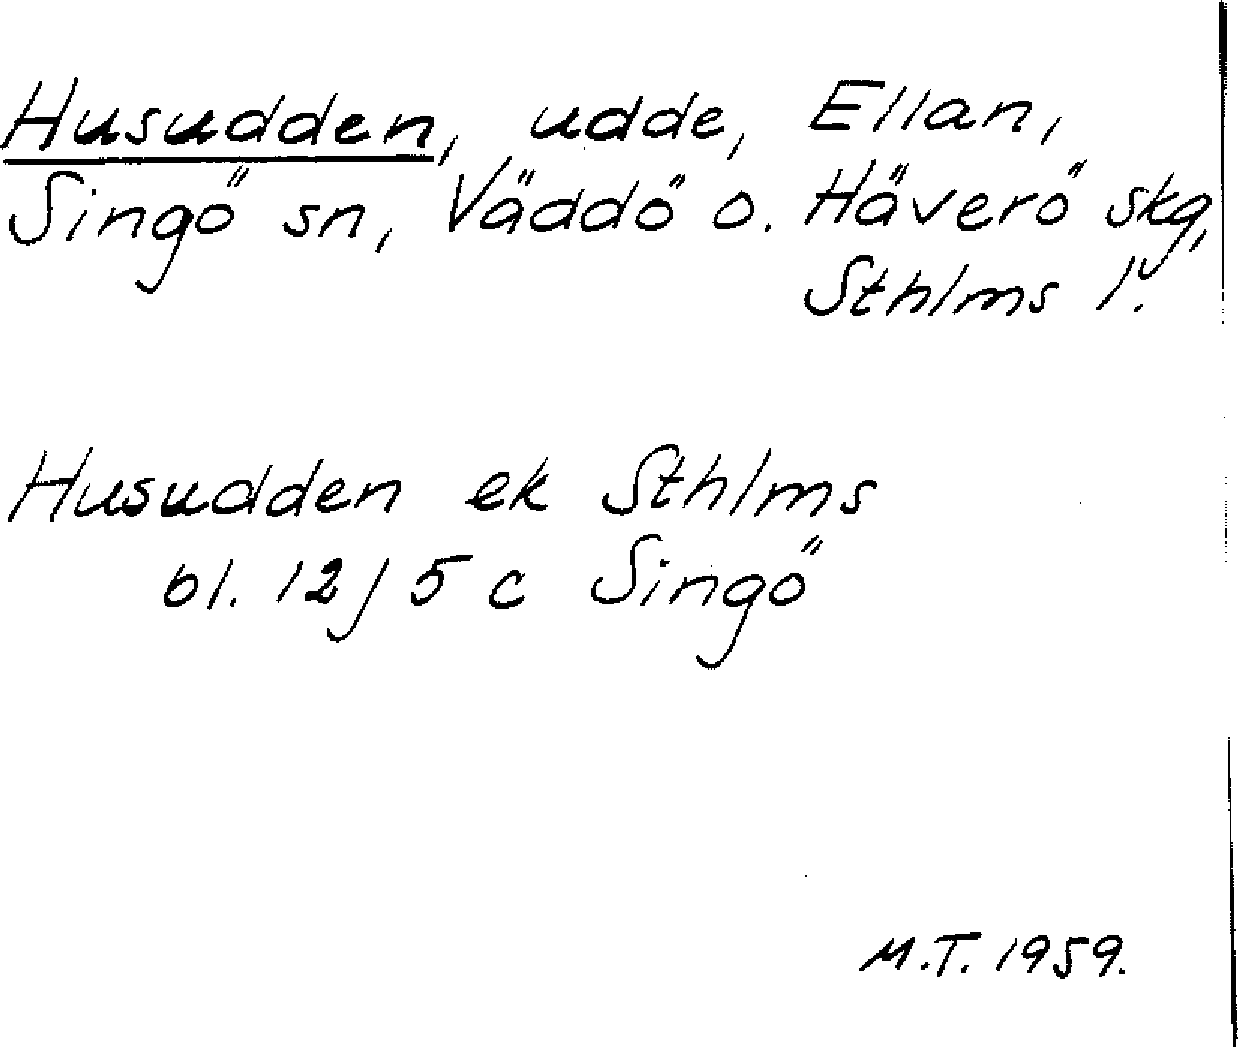 Husudden, udde, Ellan,
Singö sn, Väddö o. Häverö skg,
Sthlms l.
Husudden ek Sthlms
bl. 12 j 5 c Singö
M.T. 1959.